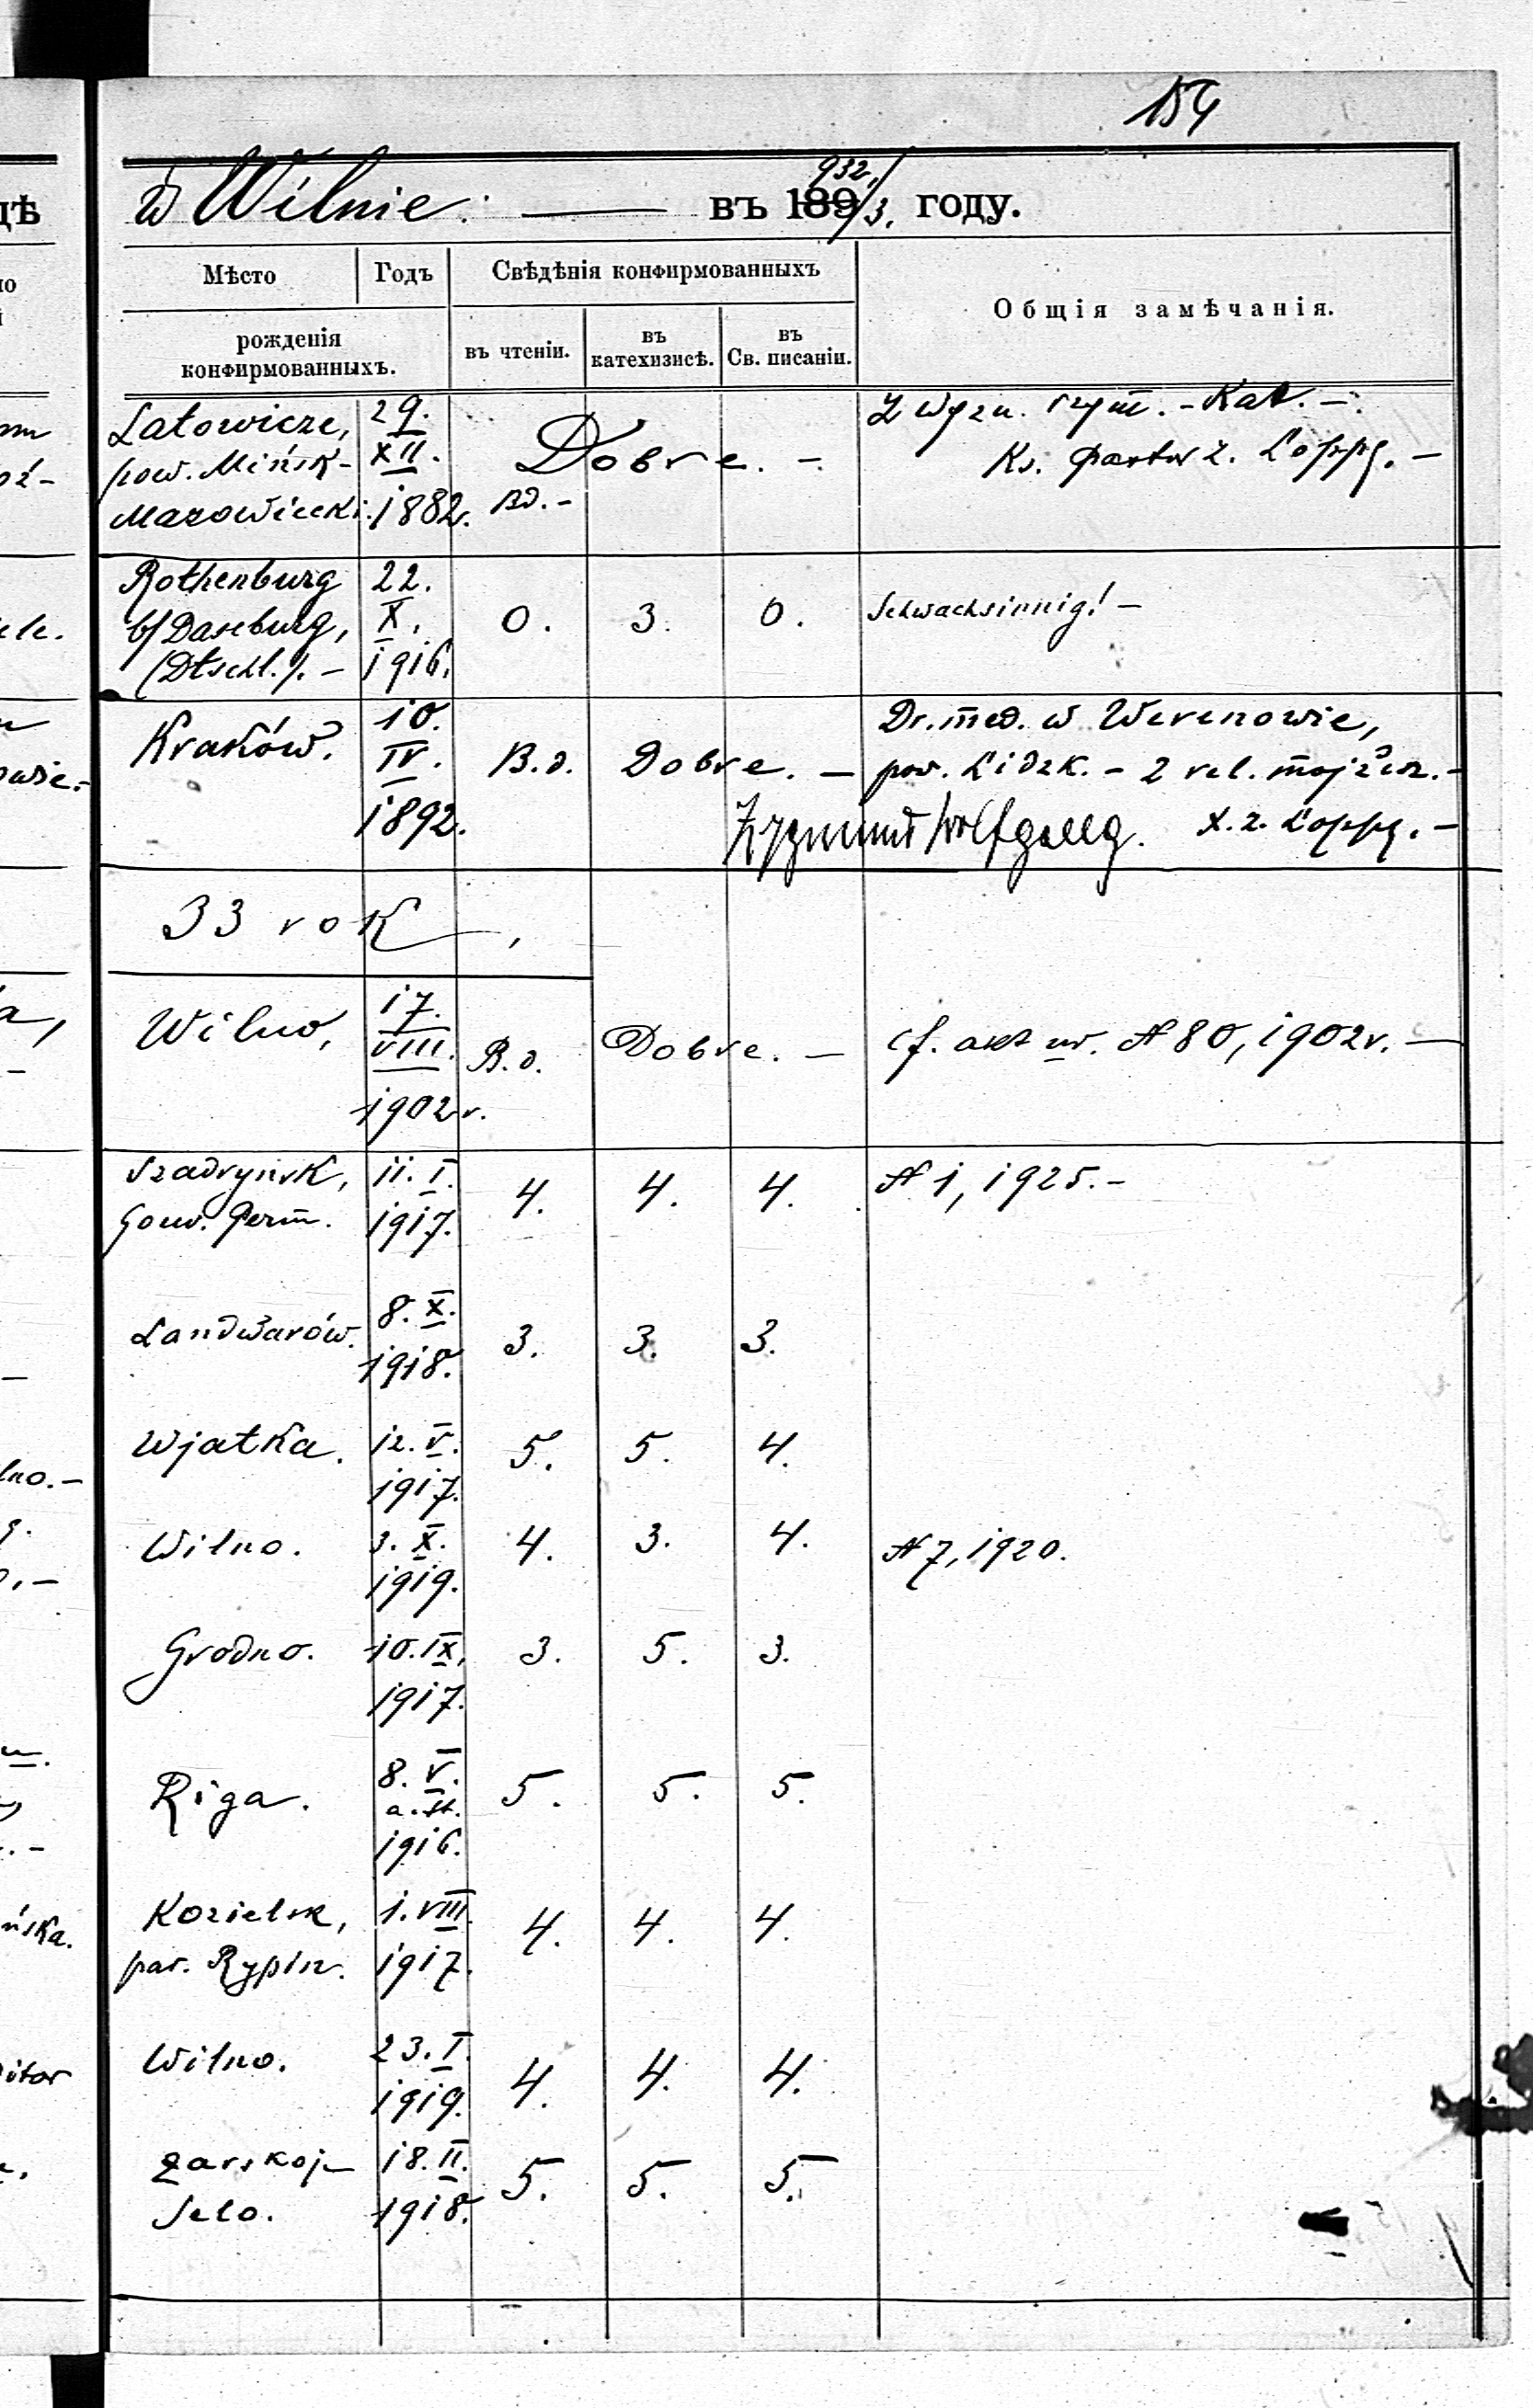 154
w Wilnie. — въ 189 932/3. году.
Мѣсто Годъ Свѣдѣнія конфирмованныхъ Общія замѣчанія.
рожденія конфирмованныхъ. въ чтеніи. въ катехизисѣ. въ Св. писаніи.
Latowicze, 29. Z wyzn. rzym. - Kat. -.
pow. Mińsk- XII. Dobre. -. Ks. Pastor Z. Loppe. -
Mazowiecki. 1882r. Bd. -
Rothenburg 22.
b/Daseburg, X. 0. 3. 0. Schwachsinnig! -
(Dtschl.). - 1916.
Kraków. 10. Dr. med. w Werenowie,
IV. B.d. Dobre. - pow. Lidzk. - Z rel. mojżesz. -
1892. Zygmunt Wolfgang. X. Z. Loppe. -
33 rok,
Wilno, 17.
VIII. B.d. Dobre. - cf. akt ur. N 80, 1902r. -
1902r.
Szadryńsk, 11. I. 4. 4. 4. N 1, 1925. -
Gouv. Perm. 1917.
Landwarów. 8. X. 3. 3. 3.
1918.
Wjatka. 12. V. 5. 5. 4.
1917.
Wilno. 3. X. 4. 3. 4. N 7, 1920.
1919.
Grodno. 10. IX. 3. 5. 3.
1917.
Riga. 8. V. 5. 5. 5.
a. St.
1916.
Kozielsk, 1. VIII. 4. 4. 4.
par. Rypin. 1917.
Wilno. 23. I. 4. 4. 4.
1919.
Zarskoje 18. II. 5. 5. 5.
Selo. 1918.